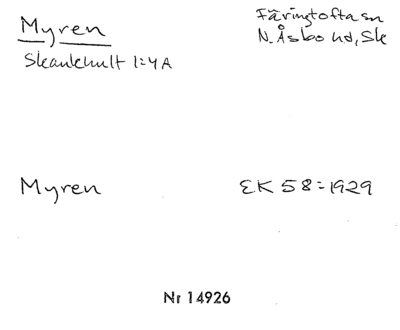 Myren
Färingtofta sn
N. Åsbo hd, Sk
Skankhult 1:4 A
Myren
EK 58 = 1929
Nr 14926